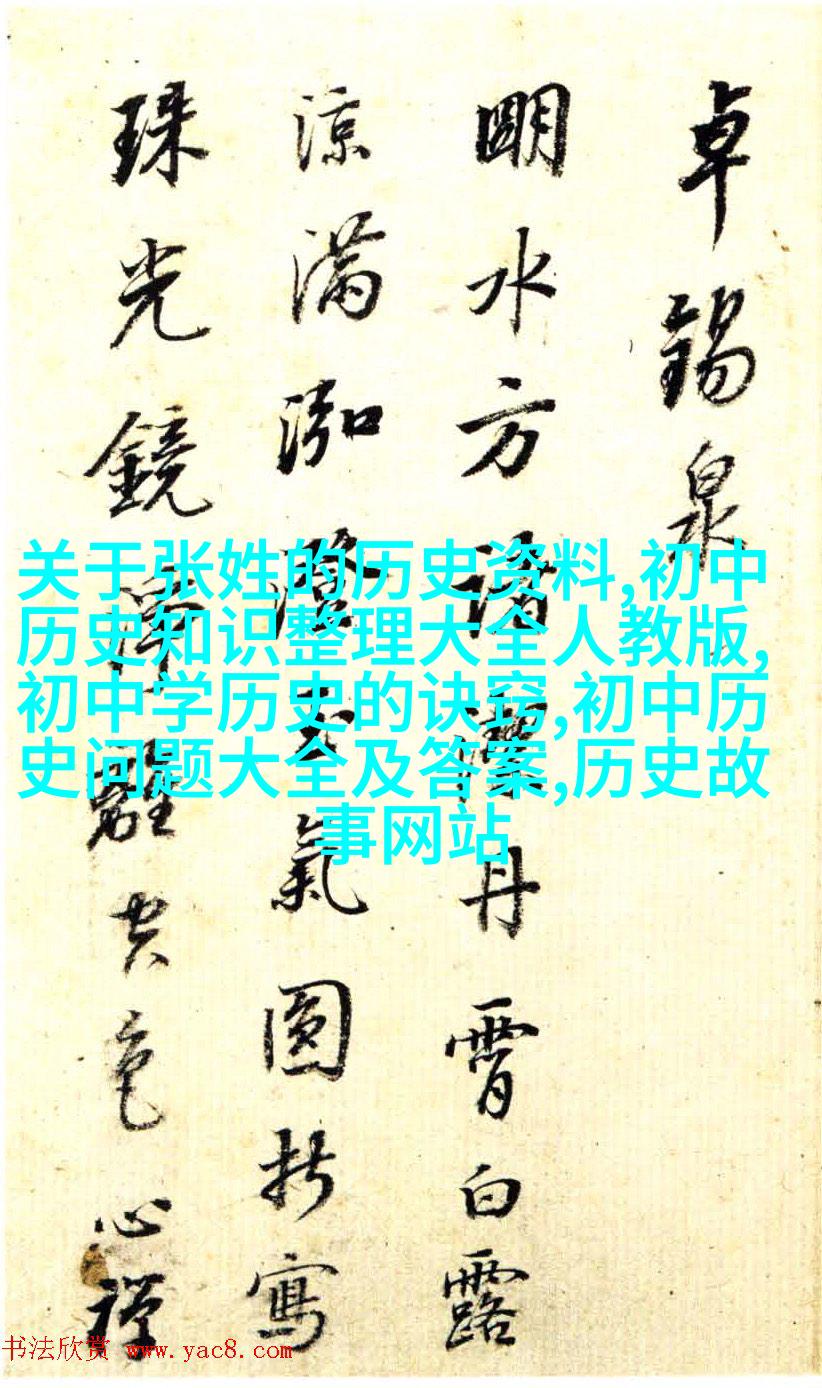 卓錫泉
朙水方諸潔丹霄白露
涼滿泓澄玉氣圓折寫
珠光鏡澤離空色心禪
关于张姓的历史资料,初中
历史知识整理大全人教版,
初中学历史的诀窍,初中历
史问题大全及答案,历史故
事网站
书法欣赏 www.yac8.com